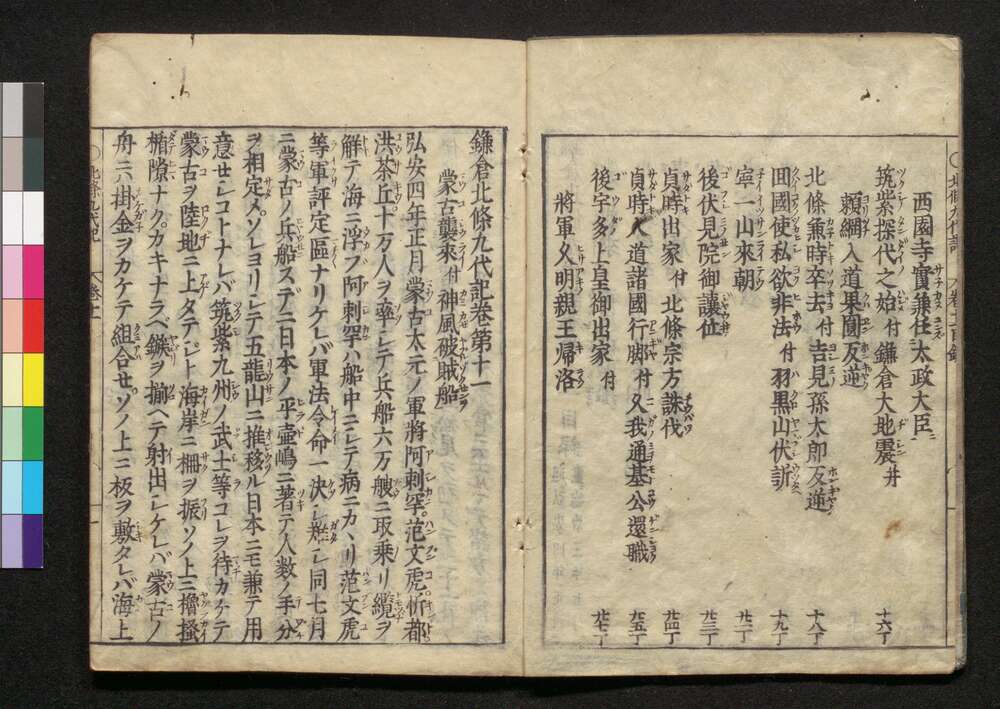 西園寺實兼任太政大臣
筑紫探代之始 付 鎌倉大地震 并
頼綱入道果圓反逆 十六丁
北條兼時卒去 付 吉見孫太郎反逆 十八丁
囬國使私欲非法 付 羽黒山伏訴 十九丁
寕一山來朝 廿一丁
後伏見院御讓位 廿三丁
貞時出家 付 北條宗方誅伐 廿四丁
貞時入道諸國行脚 付 久我通基公還職 廿五丁
後宇多上皇御出家 付
將軍久明親王帰洛 廿七丁
鎌倉北條九代記卷第十一
蒙古襲來 付 神風破賊船
弘安四年正月蒙古太元ノ軍將阿刺罕范文虎忻都
洪茶丘十万人ヲ率シテ兵船六万艘ニ取乗リ纜ヲ
解テ海ニ浮ブ阿刺罕ハ船中ニシテ病ニカヽリ范文虎
等軍評定區ナリケレバ軍法令命一決シ難シ同七月
ニ蒙古ノ兵船スデニ日本ノ平壷嶋ニ著テ人数ノ手分
ヲ相定メソレヨリシテ五龍山ニ推移ル日本ニモ兼テ用
意セシコトナレバ筑紫九州ノ武士等コレヲ待カケテ
蒙古ヲ陸地ニ上タテジト海岸ニ柵ヲ振ソノ上ニ櫓掻
楯隙ナクカキナラベ鏃ヲ揃ヘテ射出シケレバ蒙古ノ
舟ニハ掛金ヲカケテ組合セソノ上ニ板ヲ敷タレバ海上